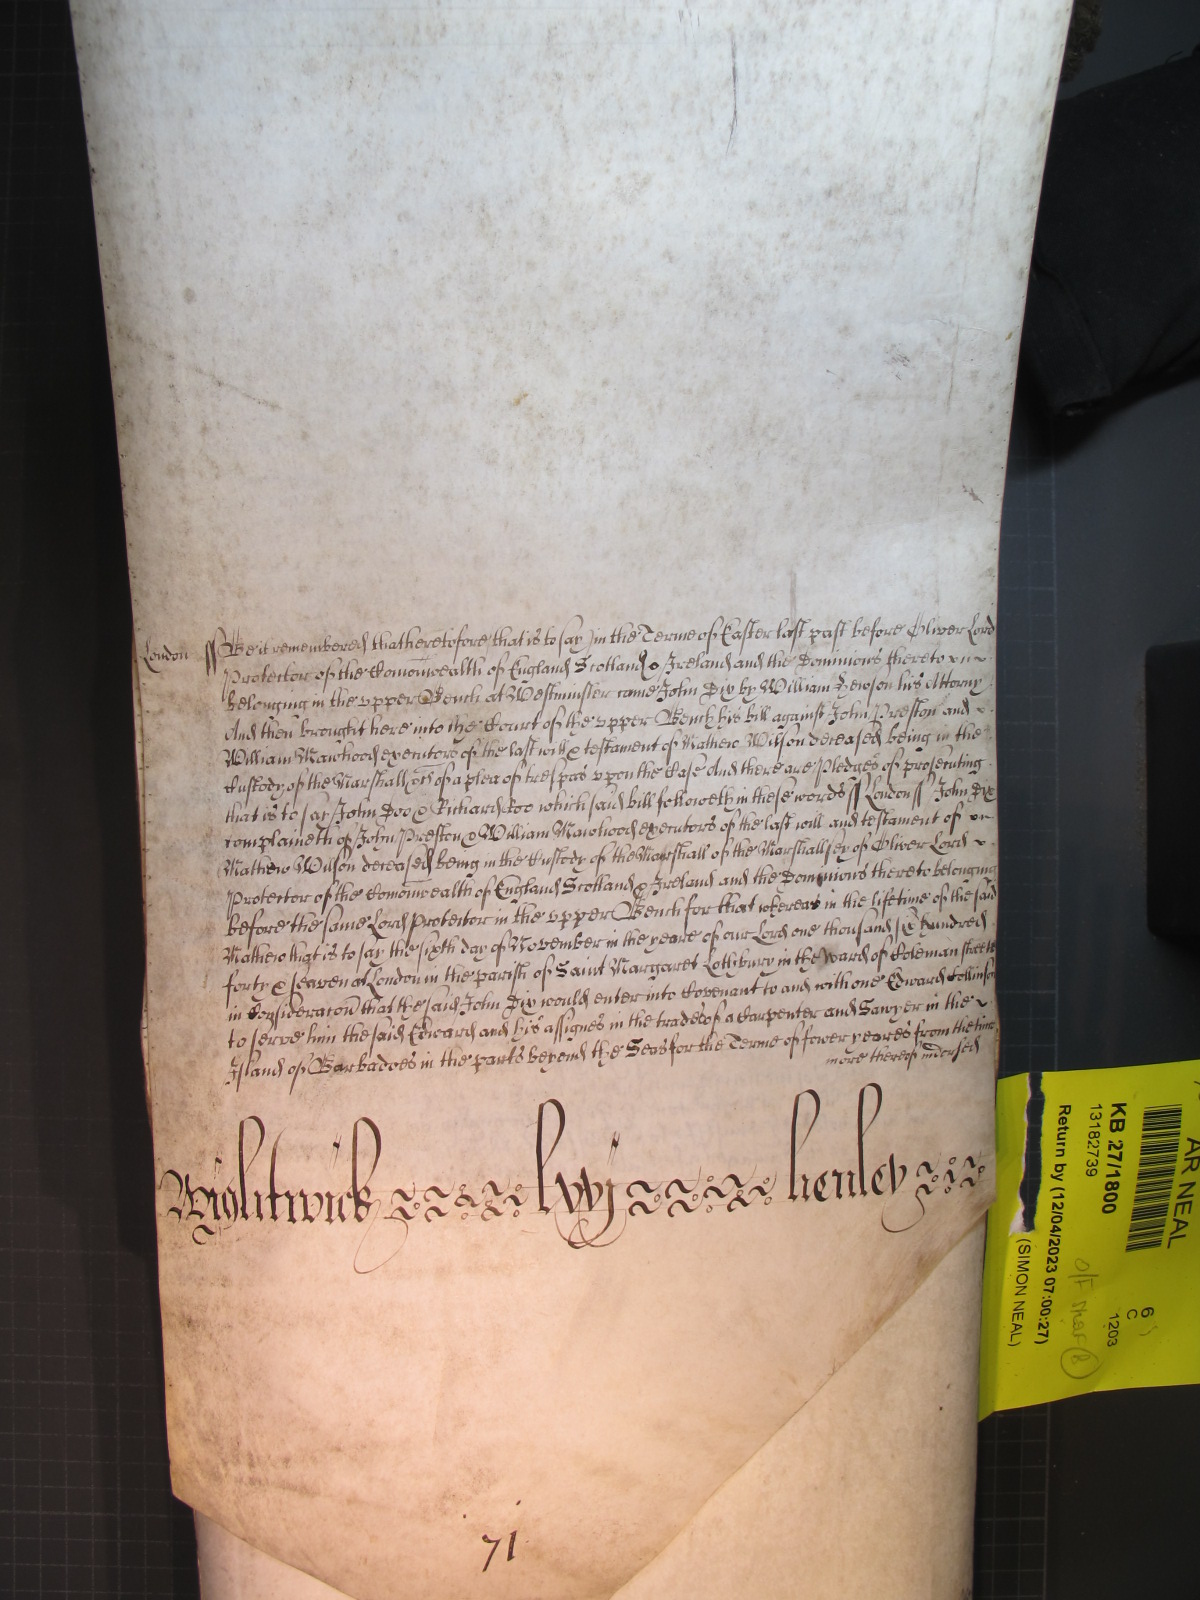 London ss Be it remembered that heretofore that is to say in the Terme of Easter last past before Oliver Lord
Protector of the Comonwealth of England Scotland & Ireland and the Dominions thereto
belonging in the upper Bench at Westminster came John Dix by William Hewson his Attorny
And then brought here into the Court of the upper Bench his bill against John Preston and
William Mawhood executors of the last will & testament of Mathew Wilson deceased being in the
Custody of the Marshall &c of a plea of trespas upon the Case And there are Pledges of prosecuting
that is to say John Doo & Richard Roo which said bill followeth in these words ss London ss John Dix
complaineth of John Preston & William Mawhood executors of the last will and testament of
Mathew Wilson deceased being in the Custody of the Marshall of the Marshallsey of Oliver Lord
Protector of the Comonwealth of England Scotland & Ireland and the Dominions thereto belonging
before the same Lord Protector in the upper Bench for that whereas in the lifetime of the said
Mathew that is to say the sixth day of November in the yeare of our Lord one thousand six hundred
forty & seaven at London in the parish of Saint Margaret Lothbury in the Ward of Coleman streete
in Consideracon that the said John Dix would enter into Covenant to and with one Edward Collinson
to serve him the said Edward and his assignes in the trades of a Carpenter and Sawyer in the
Island of Barbadoes in the parts beyond the Seas for the Terme of fower yeares from the time
more thereof indorsed
Wightwick lxxj henley
71
AR NEAL
KB 27/1800
13182739
Return by (12/04/2023 07:00:27)
(SIMON NEAL)
6
C
1203